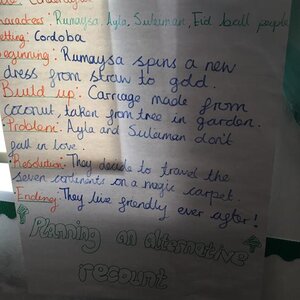 Characters: Rumaysa, Ayla, Suleiman, Eid ball people
Setting: Cordoba
Beginning: Rumaysa spins a new
dress from straw to gold.
Build up: Carriage made from
coconut, taken from tree in garden.
Problem: Ayla and Sulaman don't
fall in love.
Resolution: They decide to travel the
seven continents on a magic carpet.
Ending: They live friendly ever after!
Planning an alternative
recount